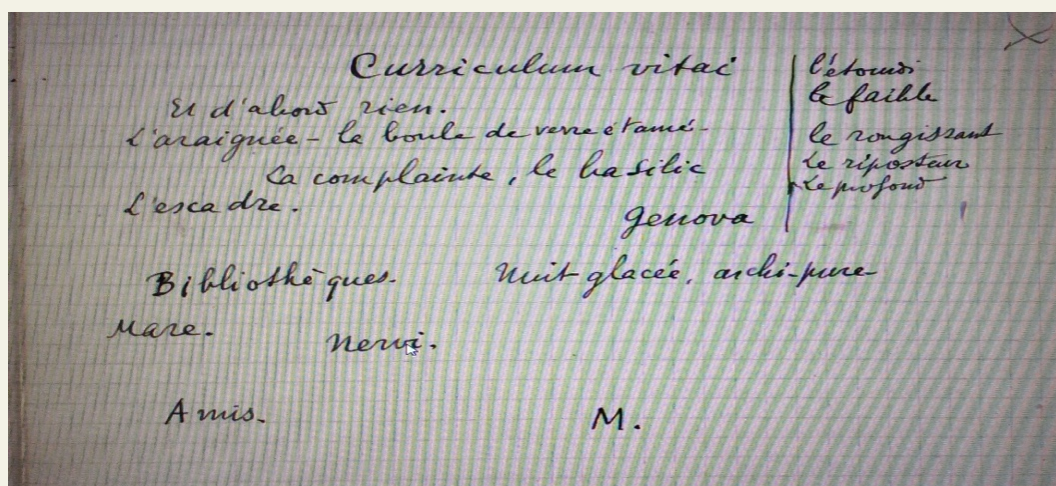 Curriculum vitae
Et d'abord rien.
L'araignée - la boule de verre étamé -
La complainte, le basilic
L'escadre.
Genova
l'étourdi
le faible
le rougissant
Le riposteur
Le profond
Bibliothèques. Nuit glacée, archi-pure
Mare. Nervi.
Amis. M.